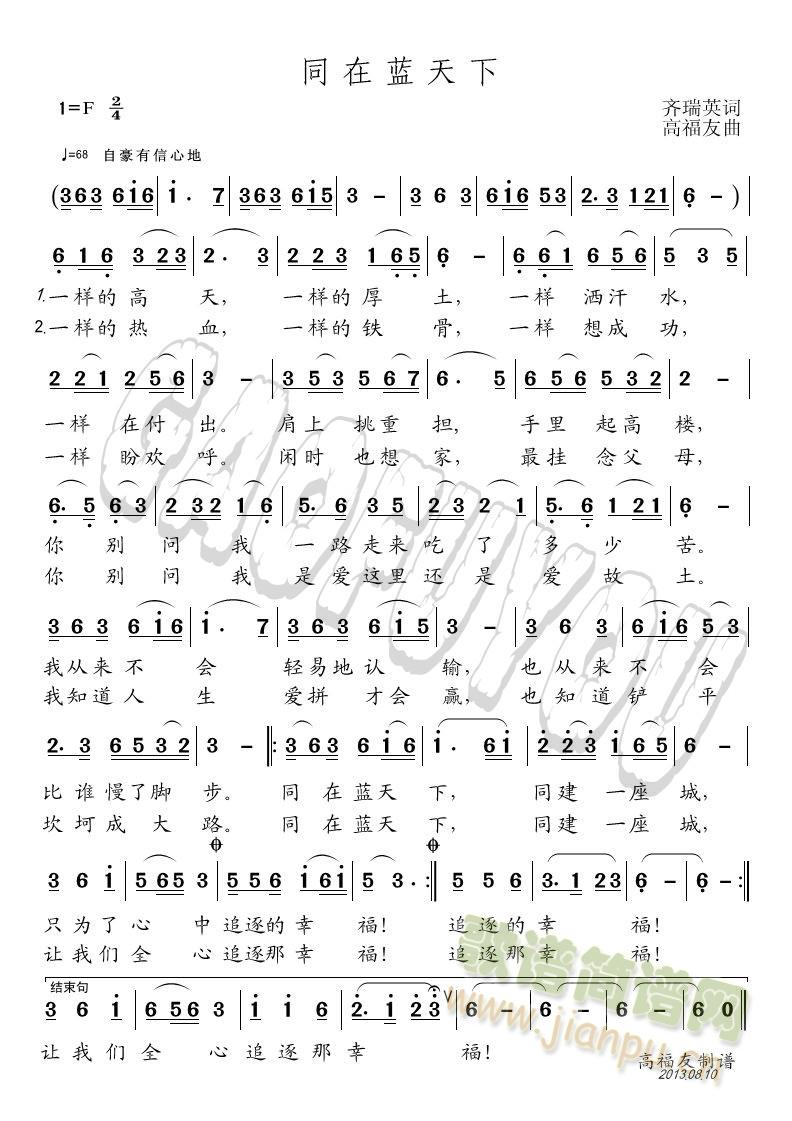 同在蓝天下
1=F 2/4
齐瑞英词
高福友曲
♩=68 自豪有信心地
(363 6i6 | i. 7 | 363 6i5 | 3 - | 3 6 3 | 6i6 53 | 2.3 121 | 6 - )
6 1 6 3 23 | 2. 3 | 2 2 3 1 65 | 6 - | 6 6 1 6 5 6 | 5 3 5
1.一样的高 天, 一样的厚 土, 一样 洒汗 水,
2.一样的热 血, 一样的铁 骨, 一样 想成 功,
2 2 1 2 5 6 | 3 - | 3 5 3 5 6 7 | 6. 5 | 6 5 6 5 3 2 | 2 -
一样 在付 出。 肩上 挑重 担, 手里 起高 楼,
一样 盼欢 呼。 闲时 也想 家, 最挂 念父 母,
6. 5 6 3 | 2 3 2 1 6 | 5. 6 3 5 | 2 3 2 1 | 5. 6 1 2 1 | 6 -
你 别 问 我 一路走来吃 了 多 少 苦。
你 别 问 我 是爱这里还 是 爱 故 土。
3 6 3 6 i 6 | i. 7 | 3 6 3 6 i 5 | 3 - | 3 6 3 | 6 i 6 5 3
我从来不 会 轻易地认 输, 也从来不 会
我知道人 生 爱拼 才会 赢, 也知道铲 平
2. 3 6 5 3 2 | 3 - ‖: 3 6 3 6 i 6 | i. 6 i | 2 2 3 i 6 5 | 6 -
比谁慢了脚 步。 同 在蓝天 下, 同建 一座 城,
坎坷成大 路。 同 在蓝天 下, 同建 一座 城,
3 6 i | 5 6 5 3 | 5 5 6 i 6 i | 5 3. :‖ 5 5 6 | 3. i 2 3 | 6 - | 6 - :‖
只为了心 中追逐的幸 福! 追逐的幸 福!
让我们全 心追逐那幸 福! 追逐那幸 福!
结束句
3 6 i | 6 5 6 3 | i i 6 | 2. i 2 3 ∨ 6 - | 6 - | 6 - | 6 0 ‖
让我们全 心追逐那幸 福!
高福友制谱
2013.08.10
GAOFUYOU
歌谱简谱网
www.jianpu.cn